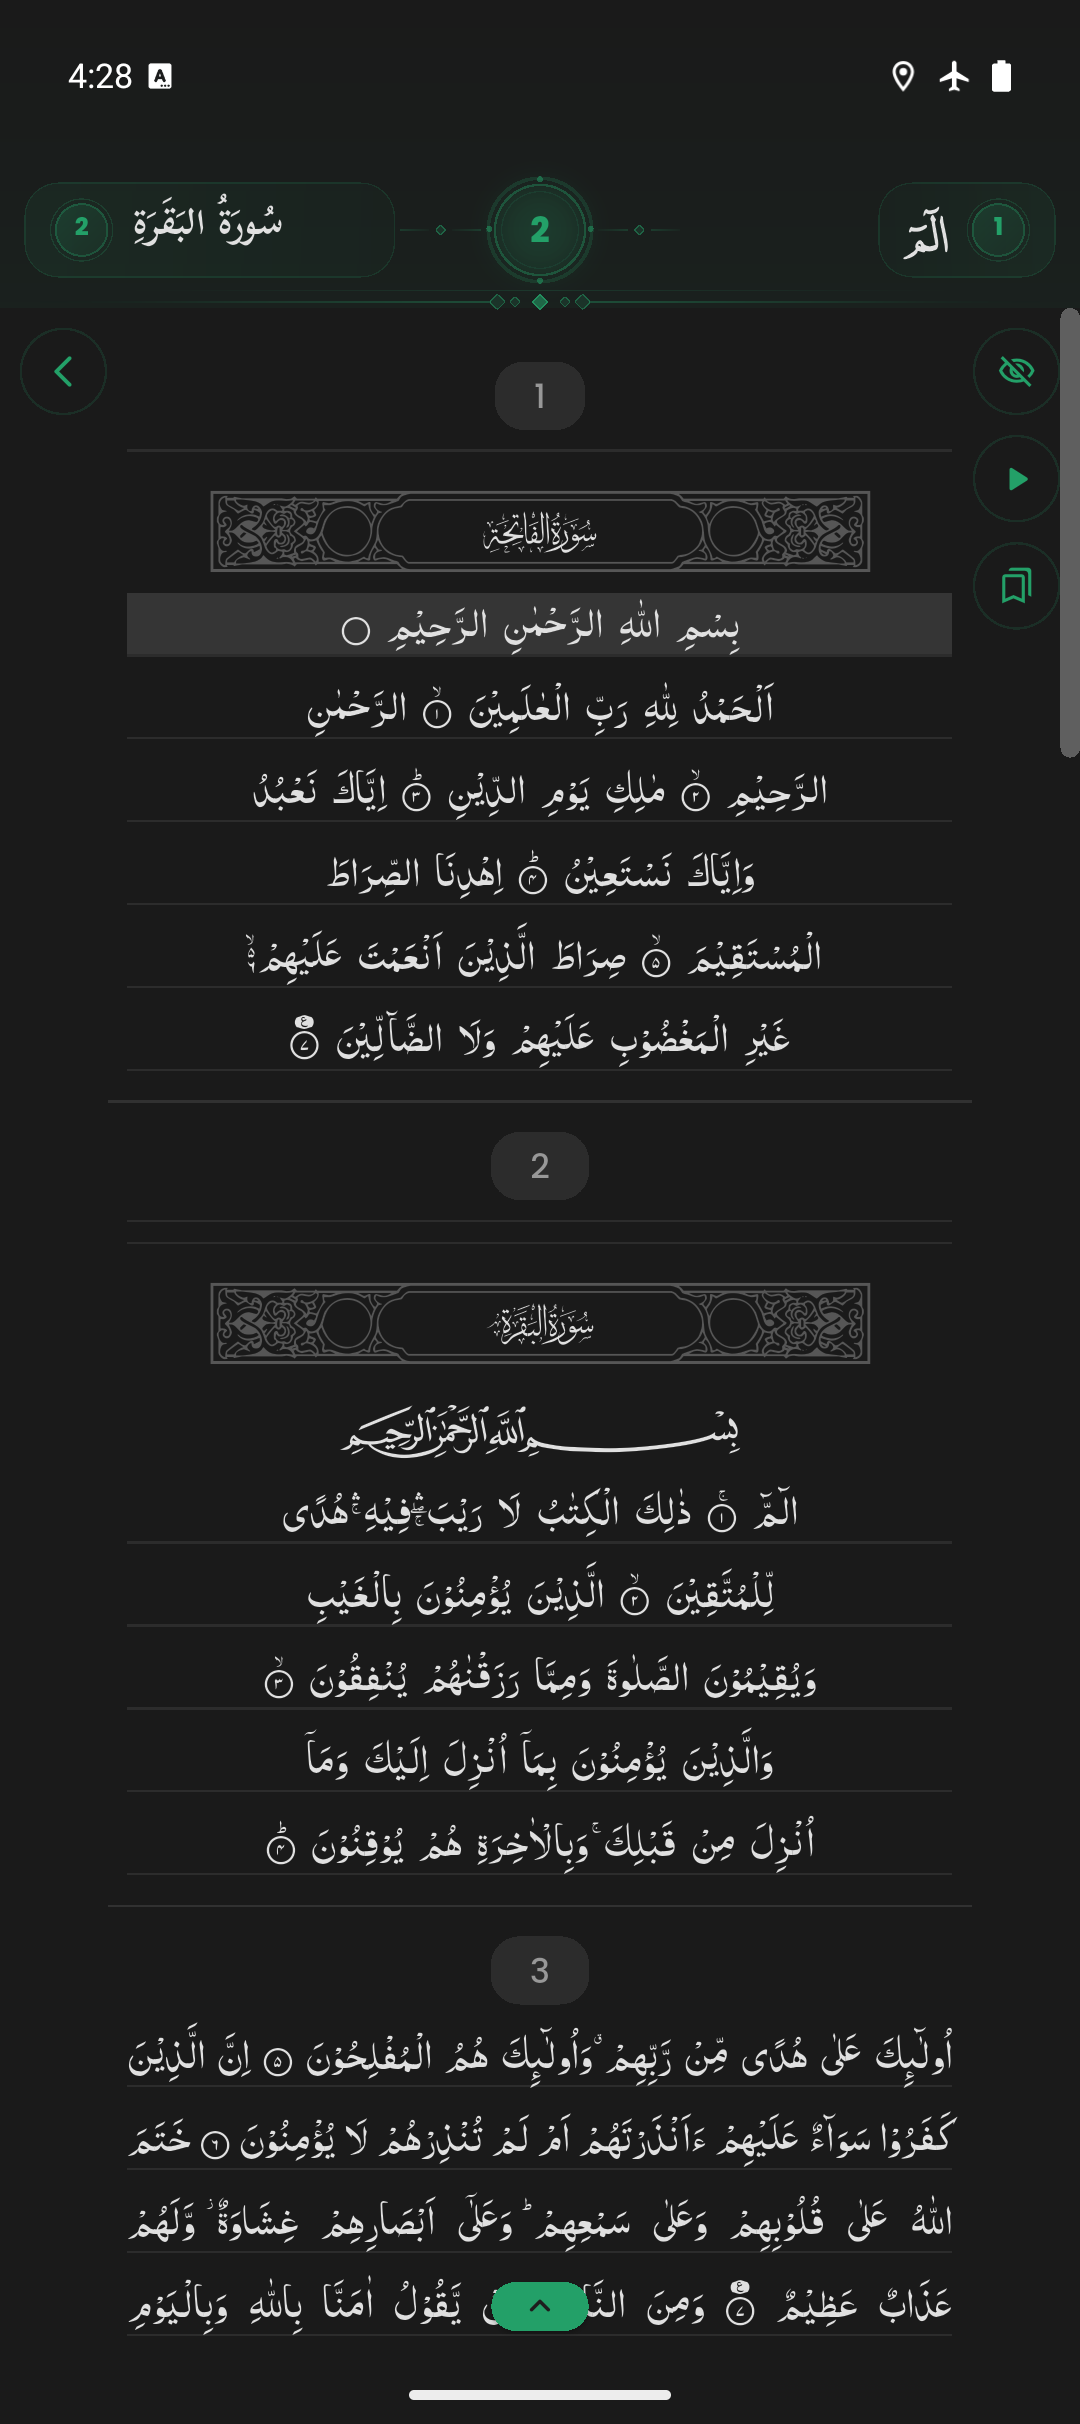 4:28
2 سُورَةُ البَقَرَةِ
2
1 الٓمّٓ
1
سُورَةُ الفَاتِحَةِ
بِسْمِ اللّٰهِ الرَّحْمٰنِ الرَّحِيْمِ
اَلْحَمْدُ لِلّٰهِ رَبِّ الْعٰلَمِيْنَ ۙ۝۱ الرَّحْمٰنِ
الرَّحِيْمِ ۙ۝۲ مٰلِكِ يَوْمِ الدِّيْنِ ؕ۝۳ اِيَّاكَ نَعْبُدُ
وَاِيَّاكَ نَسْتَعِيْنُ ؕ۝۴ اِهْدِنَا الصِّرَاطَ
الْمُسْتَقِيْمَ ۙ۝۵ صِرَاطَ الَّذِيْنَ اَنْعَمْتَ عَلَيْهِمْ
غَيْرِ الْمَغْضُوْبِ عَلَيْهِمْ وَلَا الضَّآلِّيْنَ ۝۷
2
سُورَةُ البَقَرَةِ
بِسْمِ اللّٰهِ الرَّحْمٰنِ الرَّحِيْمِ
الٓمّٓ ۚ۝۱ ذٰلِكَ الْكِتٰبُ لَا رَيْبَ ۛۖۚ فِيْهِ ۛۚ هُدًى
لِّلْمُتَّقِيْنَ ۙ۝۲ الَّذِيْنَ يُؤْمِنُوْنَ بِالْغَيْبِ
وَيُقِيْمُوْنَ الصَّلٰوةَ وَمِمَّا رَزَقْنٰهُمْ يُنْفِقُوْنَ ۙ۝۳
وَالَّذِيْنَ يُؤْمِنُوْنَ بِمَآ اُنْزِلَ اِلَيْكَ وَمَآ
اُنْزِلَ مِنْ قَبْلِكَ ۚ وَبِالْاٰخِرَةِ هُمْ يُوْقِنُوْنَ ؕ۝۴
3
اُولٰٓئِكَ عَلٰى هُدًى مِّنْ رَّبِّهِمْ ۗ وَاُولٰٓئِكَ هُمُ الْمُفْلِحُوْنَ ۝۵ اِنَّ الَّذِيْنَ
كَفَرُوْا سَوَآءٌ عَلَيْهِمْ ءَاَنْذَرْتَهُمْ اَمْ لَمْ تُنْذِرْهُمْ لَا يُؤْمِنُوْنَ ۝۶ خَتَمَ
اللّٰهُ عَلٰى قُلُوْبِهِمْ وَعَلٰى سَمْعِهِمْ ؕ وَعَلٰٓى اَبْصَارِهِمْ غِشَاوَةٌ ز وَّلَهُمْ
عَذَابٌ عَظِيْمٌ ۝۷ وَمِنَ يَّقُوْلُ اٰمَنَّا بِاللّٰهِ وَبِالْيَوْمِ